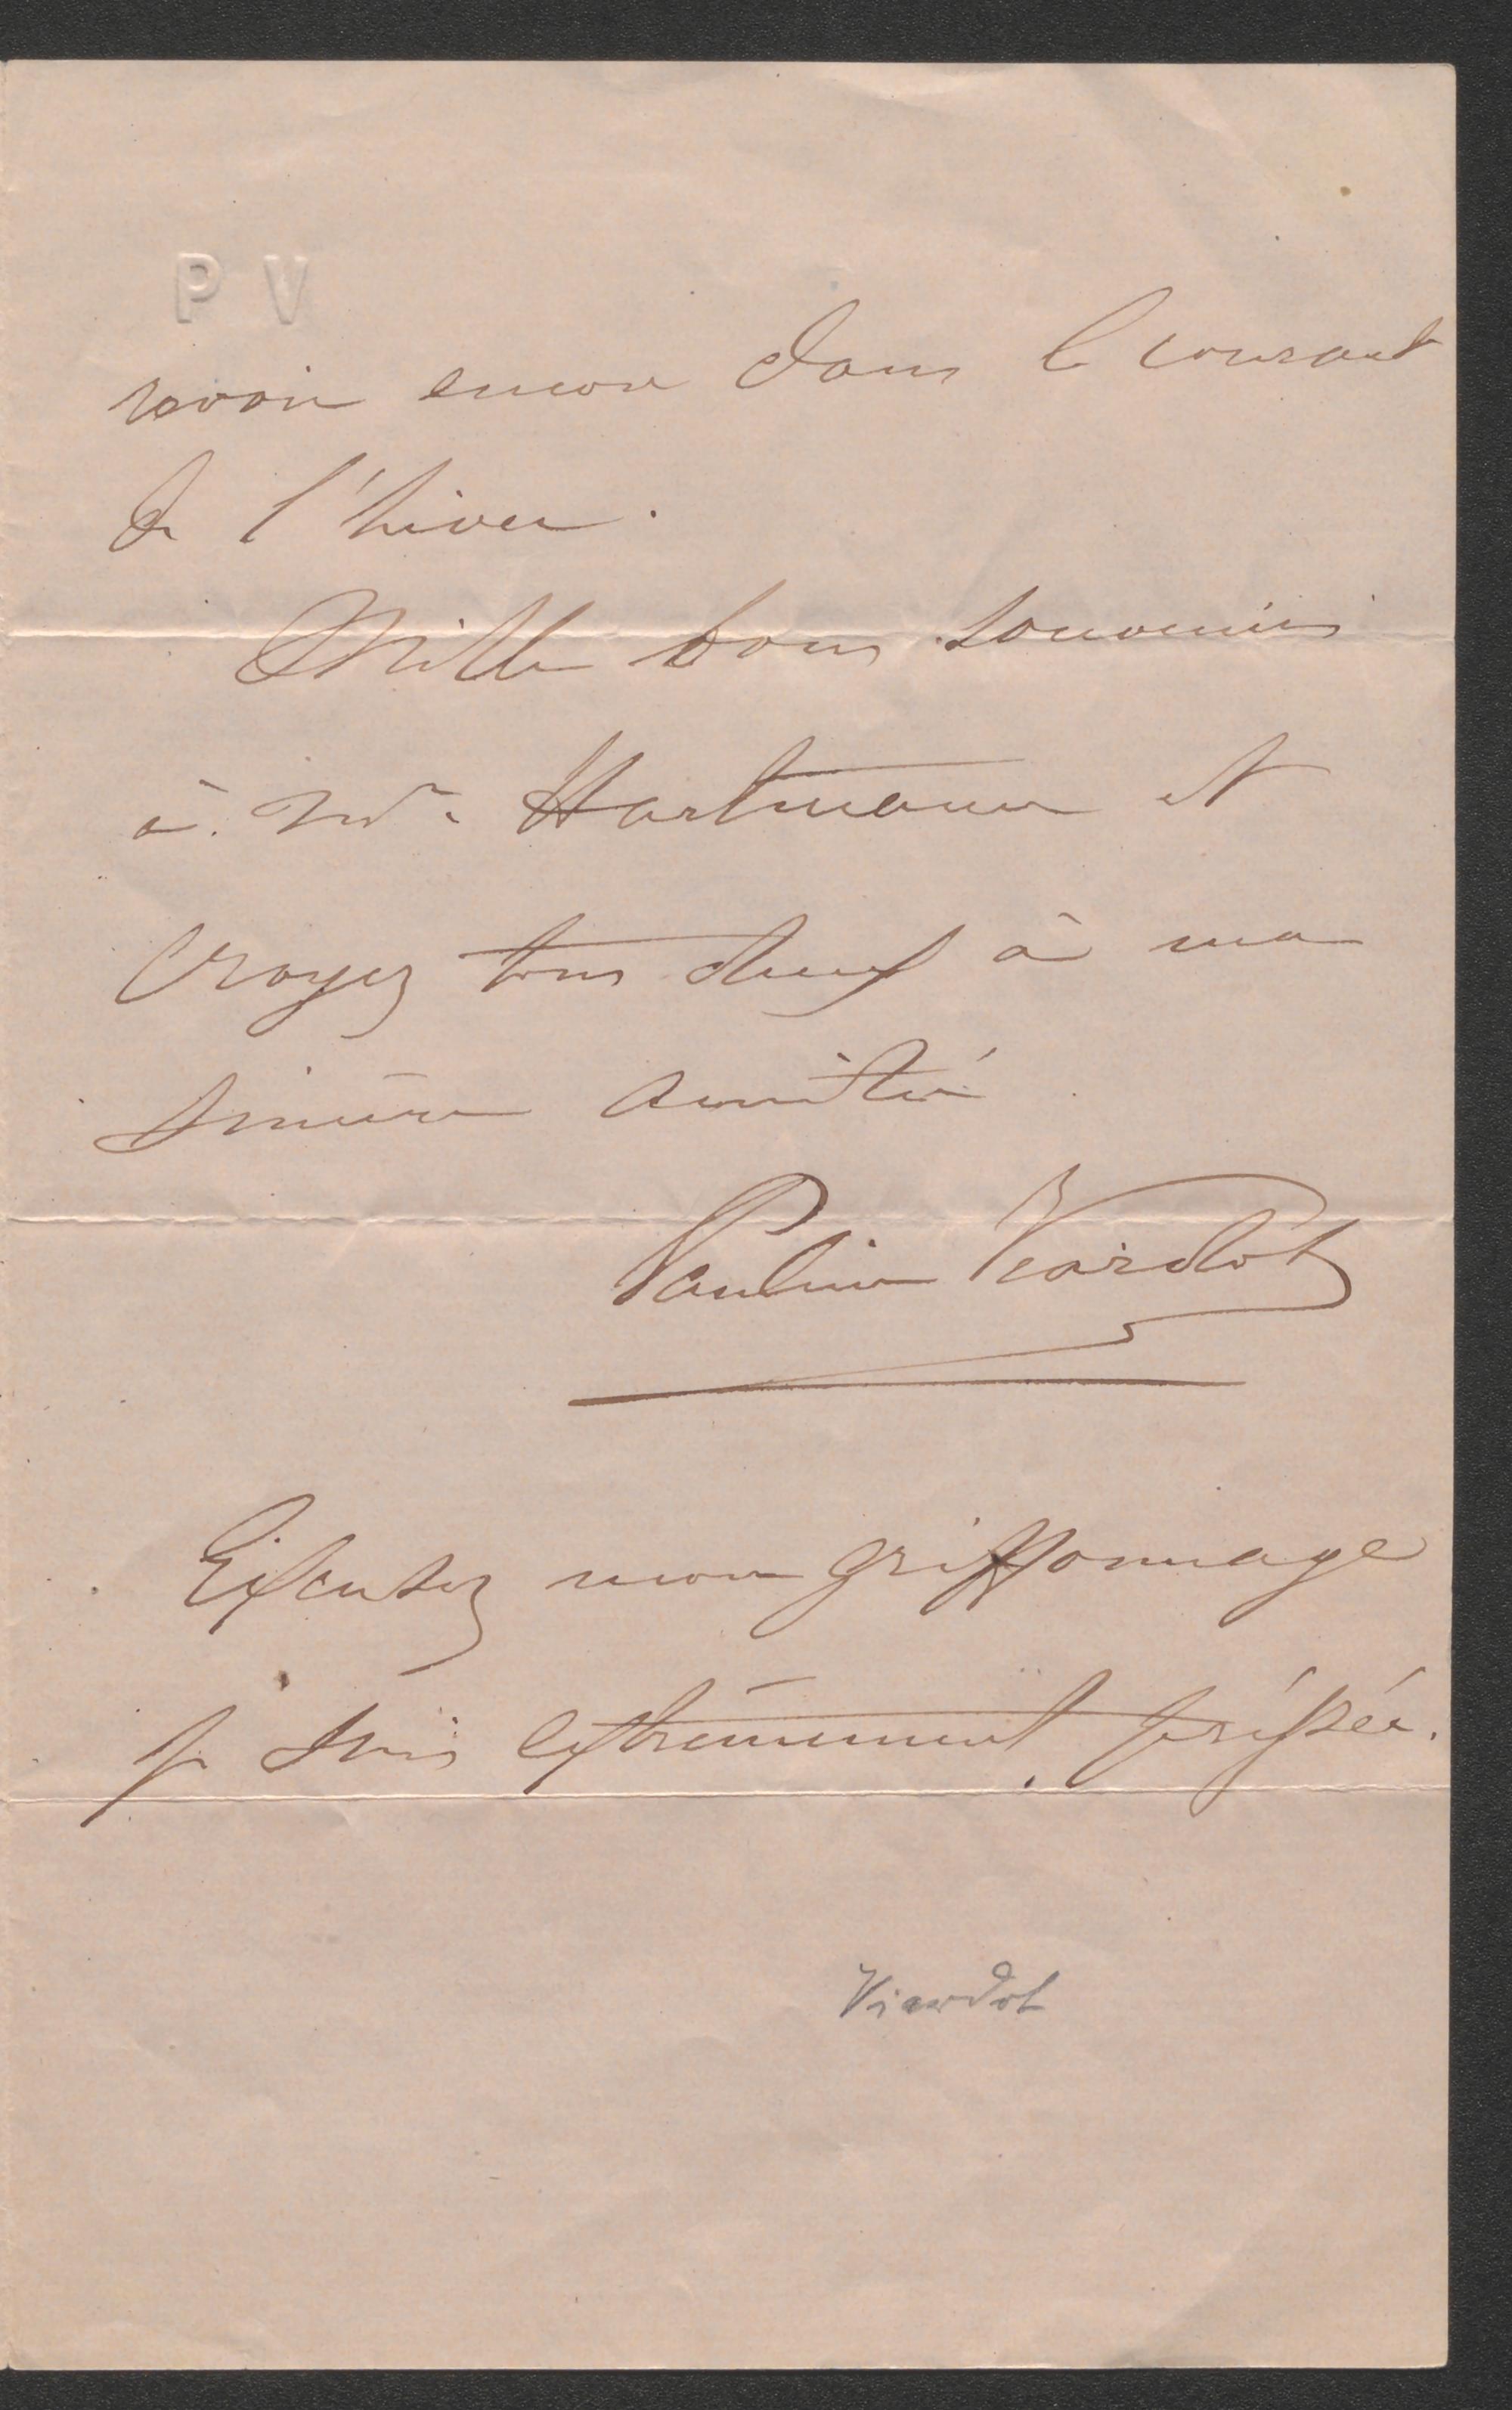 P V
revoir encore dans le courant
de l'hiver.
Mille bons souvenirs
à Mr. Hartmann et
croyez tous deux à ma
sincère amitié
Pauline Viardot
Excusez mon griffonnage
je suis extrêmement pressée.
Viardot